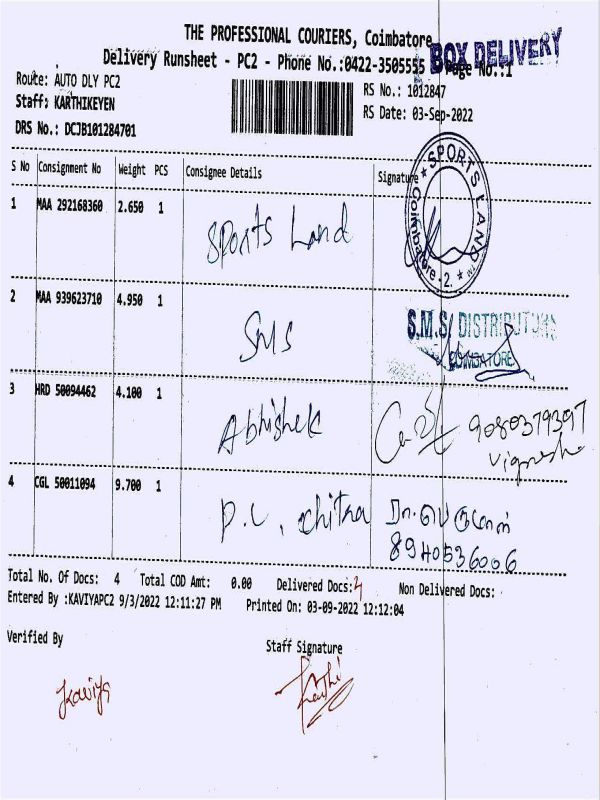 THE PROFESSIONAL COURIERS, Coimbatore
Delivery Runsheet - PC2 - Phone No.:0422-3505555 Page No.:1
BOX DELIVERY
Route: AUTO DLY PC2
RS No.: 1012847
Staff: KARTHIKEYEN
RS Date: 03-Sep-2022
DRS No.: DCJB101284701
S No Consignment No Weight PCS Consignee Details Signature
1 MAA 292168360 2.650 1 Sports Land
SPORTS LAND Coimbatore - 2.
2 MAA 939623710 4.950 1 SMS
S.M.S. DISTRIBUTORS
COIMBATORE
3 HRD 50094462 4.100 1 Abhishek 9080379397
Vignesh
4 CGL 50011094 9.700 1 P.L. chitra ரா.பெருமாள்
8940536006
Total No. Of Docs: 4 Total COD Amt: 0.00 Delivered Docs: 4 Non Delivered Docs:
Entered By :KAVIYAPC2 9/3/2022 12:11:27 PM Printed On: 03-09-2022 12:12:04
Verified By Staff Signature
Kaviya